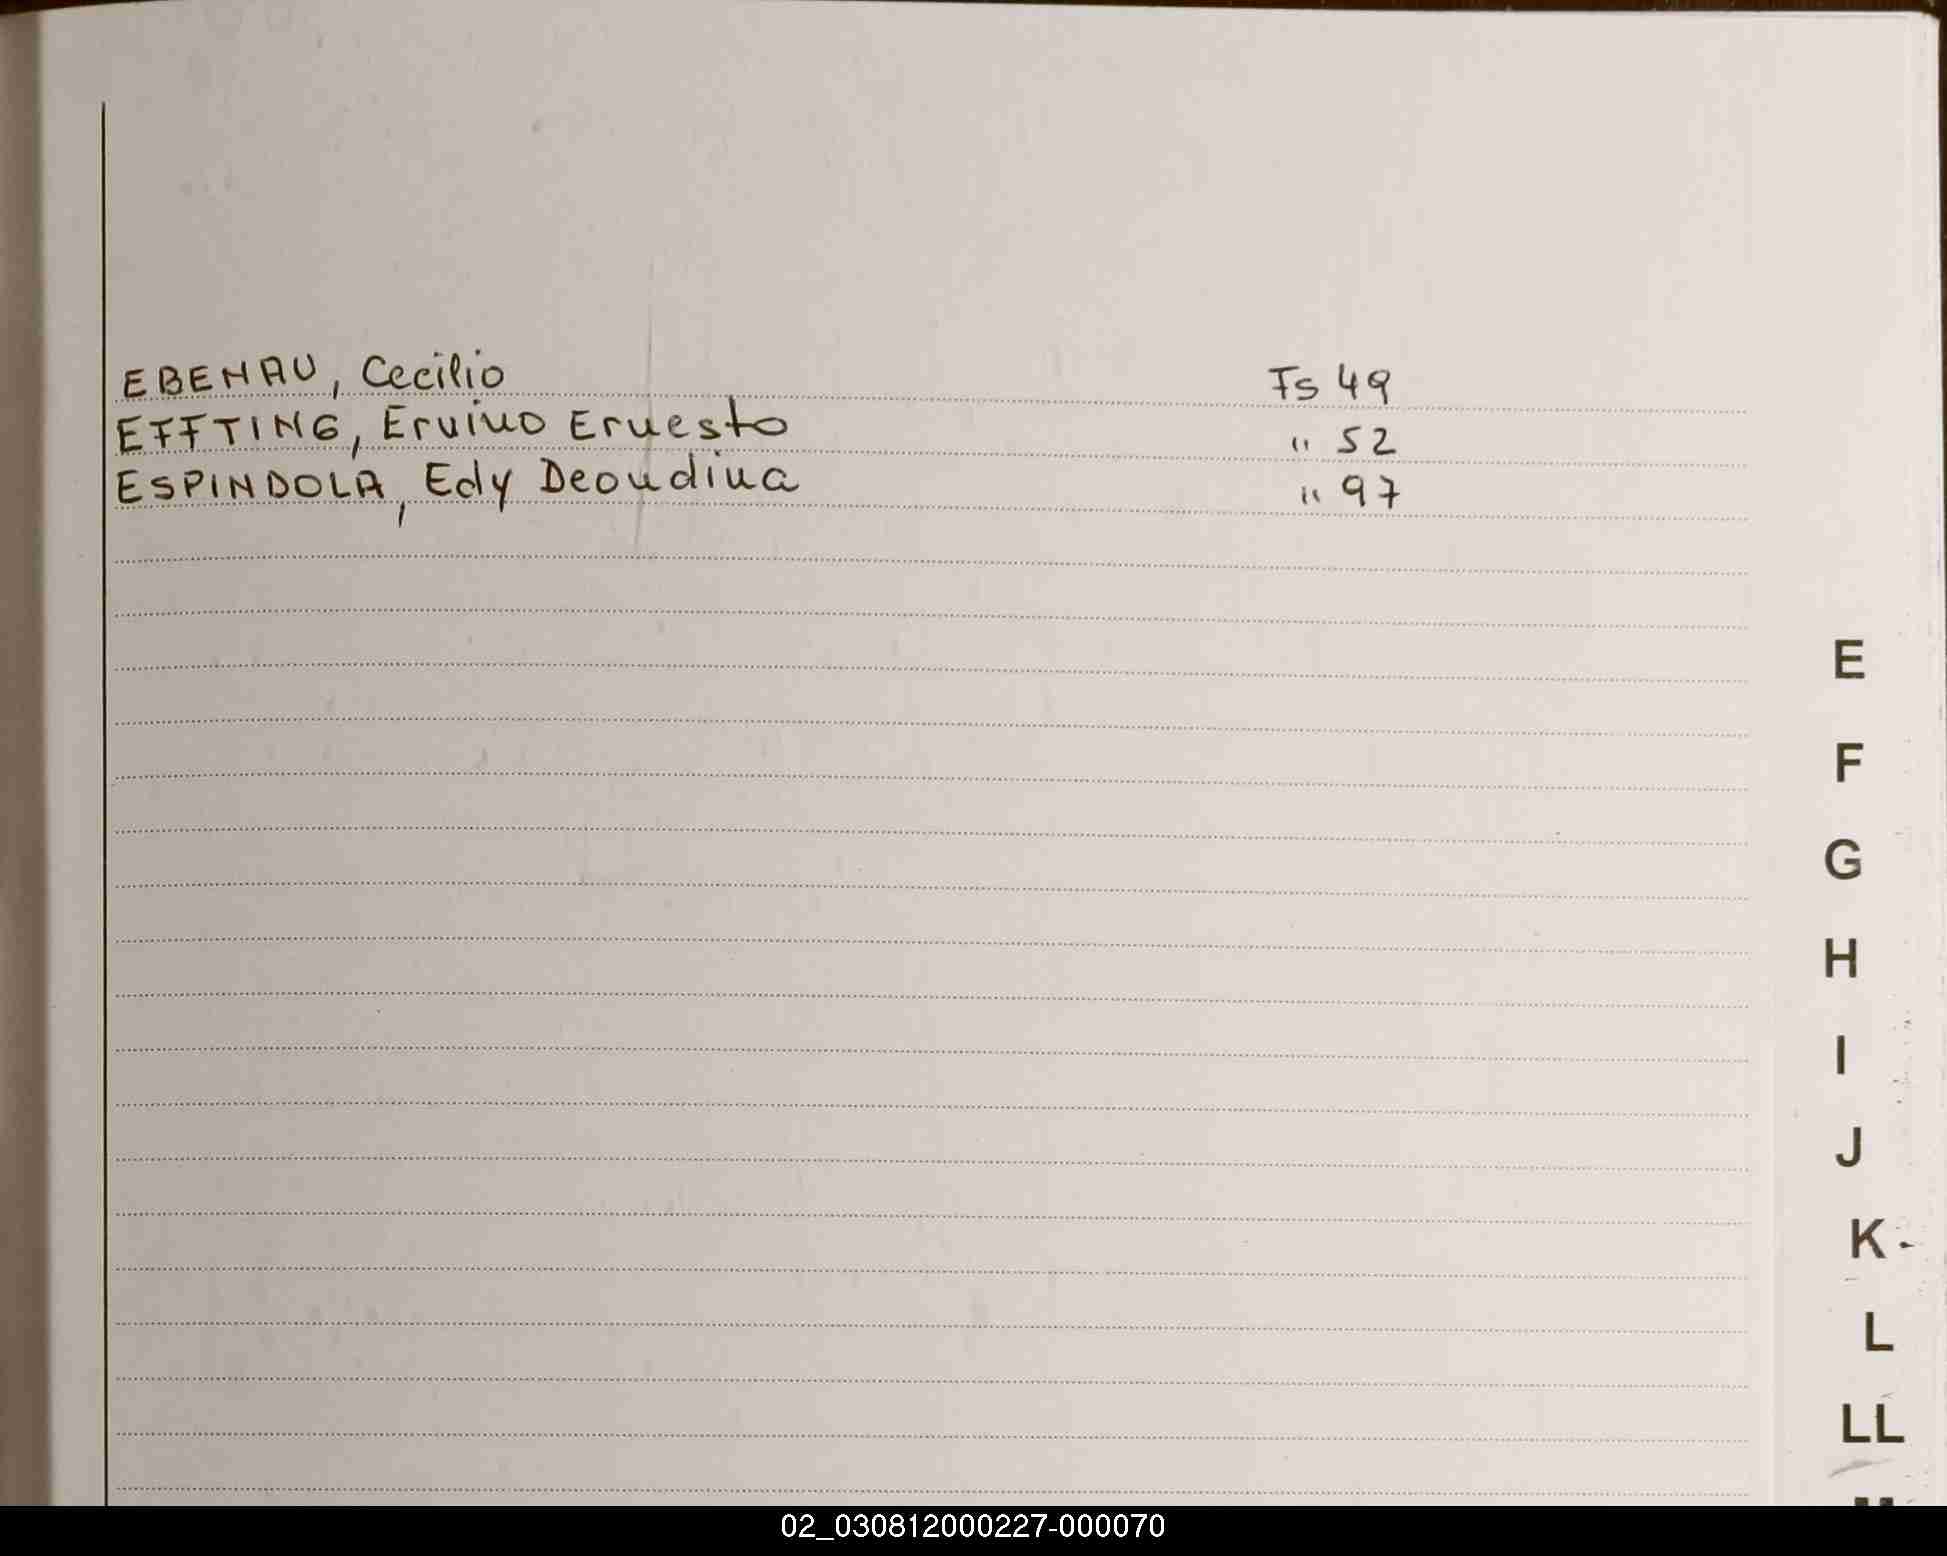 EBENAU, Cecilio Fs 49
EFFTING, Ervino Ernesto " 52
ESPINDOLA, Edy Deondina " 97
E
F
G
H
I
J
K
L
LL
02_030812000227-000070